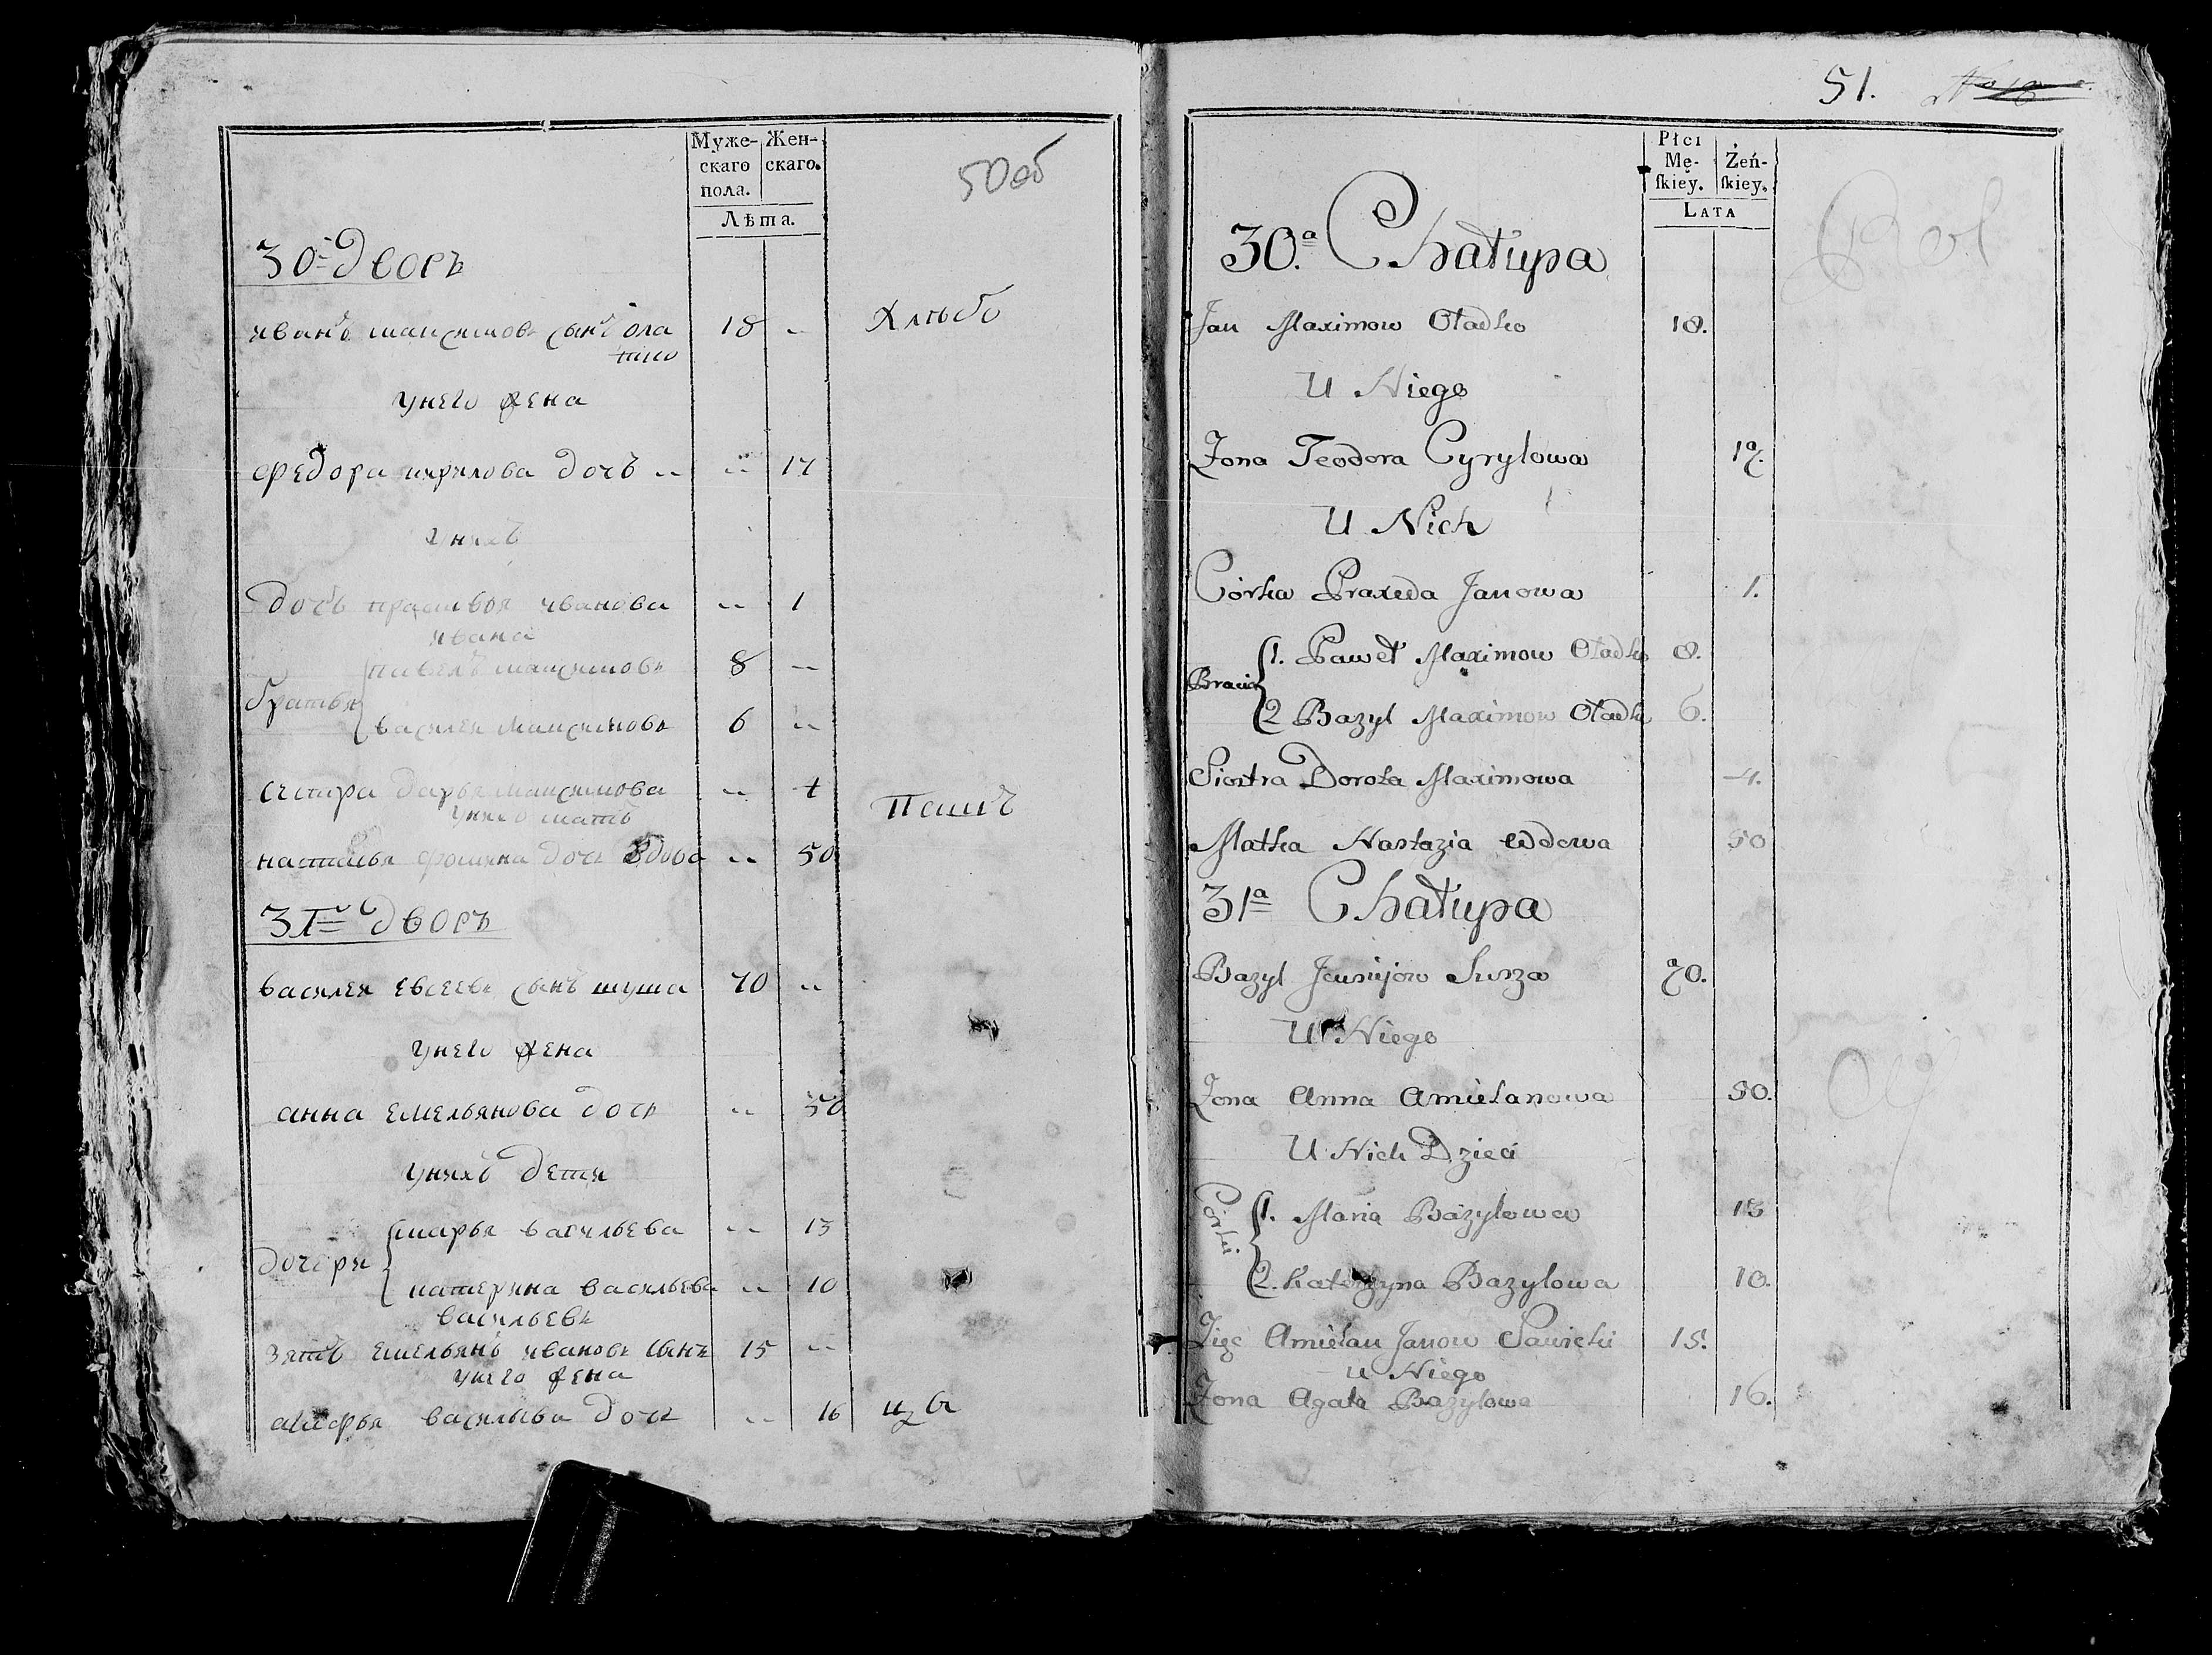 Муже-
скаго
пола.
Жен-
скаго.
Лѣта.
50 об
30й дворъ
иванъ максимовъ сынъ ола
тко
18 --
Хлѣбо
унего жена
федора кирилова дочь -- -- 17
унихъ
дочь прасковья иванова -- 1
ивана
братья
павелъ максимовъ 8 --
василей максимовъ 6 --
сестра дарья максимова -- 4
унихъ мать
настасья фомина дочь вдова -- 50
31й дворъ
василей евсеевъ сынъ шуша 70 --
унего жена
анна емельянова дочь -- 50
унихъ дети
дочери
марья васильева -- 13
катерина васильева -- 10
васильевъ
зять емельянъ ивановъ сынъ 15 --
унего жена
агафья васильева дочь -- 16
51.
Płci
Mę-
skiey.
Żeń-
skiey.
LATA
30.ª Chałupa
Jan Maximow Oładko 18.
U Niego
Żona Teodora Cyryłowa 17.
U Nich
Córka Praxeda Janowa 1.
Bracia
1. Paweł Maximow Oładko 8.
2 Bazyl Maximow Oładko 6.
Siostra Dorota Maximowa 4.
Matka Nastazia wdowa 50
31ª Chałupa
Bazyl Jewsiejow Susza 70.
U Niego
Żona Anna Amielanowa 50.
U Nich Dzieci
Córki
1. Maria Bazylowa 13
2. Katerzyna Bazylowa 10.
Zięć Amielan Janow Sawicki 15.
u Niego
Żona Agata Bazylowa 16.